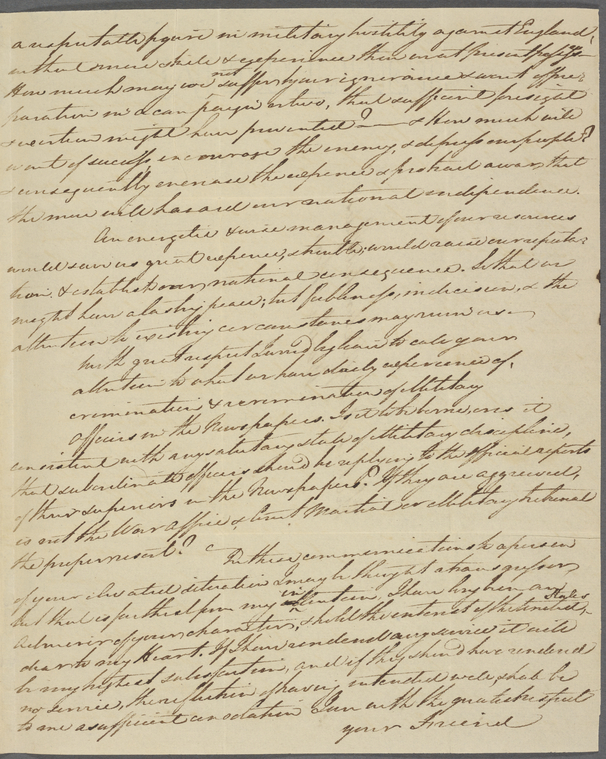 a respectable figure in military hostility against England,
without more skill & experience than we at present possess
How much may we not suffer, by our ignorance & want of pre-
paration in a campaign or two, that sufficient foresight
& exertion might have prevented? — & How much will
want of success, encourage the enemy, & depress our people?
& consequently increase the expence & protract a war, that
the more will hazard our national independence.
An energetic & wise management of our resources
would save us great expence, & trouble; would raise our reputa-
tion, & establish our national consequence. So that we
might have a lasting peace; but feebleness, indecision, & the
attention to existing circumstances may ruin us.
With great respect Sir I beg leave to call your
attention to what we have daily experience of,
crimination & recrimination of Military
Officers in the Newspapers. Is it to be borne, or is it
consistent with any salutary state of Military discipline,
that subordinate officers should be replying to the official reports
of their superiors in the Newspapers? If they are aggrieved,
is not the War office, & Court Martial or Military tribunal
the proper resort?
In these communications to a person
of your elevated situation I may be thought a transgressor,
but that is farthest from my intention, I have long been an
admirer of your character, & hold the interest of the United States
dear to my Heart. If I have rendered any service it will
be my highest satisfaction, and if they should have rendered
no service, the reflection of having intended well shall be
to me a sufficient consolation I am with the greatest respect
your Friend